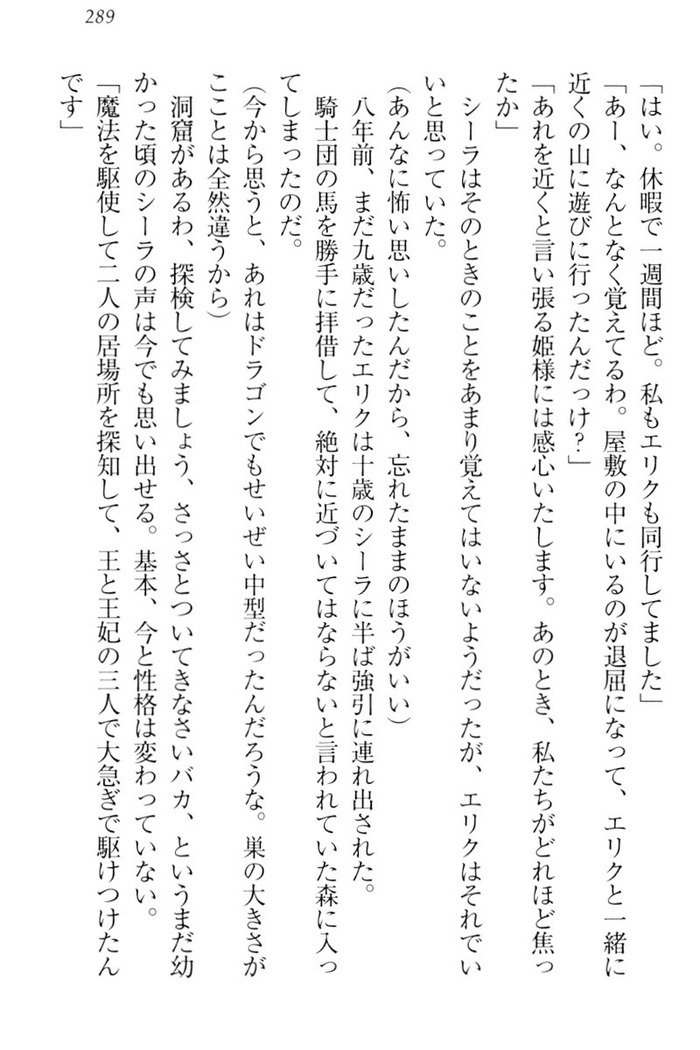 289
「はい。休暇で一週間ほど。私もエリクも同行してました」
「あー、なんとなく覚えてるわ。屋敷の中にいるのが退屈になって、エリクと一緒に
近くの山に遊びに行ったんだっけ？」
「あれを近くと言い張る姫様には感心いたします。あのとき、私たちがどれほど焦っ
たか」
　シーラはそのときのことをあまり覚えてはいないようだったが、エリクはそれでい
いと思っていた。
（あんなに怖い思いしたんだから、忘れたままのほうがいい）
　八年前、まだ九歳だったエリクは十歳のシーラに半ば強引に連れ出された。
　騎士団の馬を勝手に拝借して、絶対に近づいてはならないと言われていた森に入っ
てしまったのだ。
（今から思うと、あれはドラゴンでもせいぜい中型だったんだろうな。巣の大きさが
こことは全然違うから）
　洞窟があるわ、探検してみましょう、さっさとついてきなさいバカ、というまだ幼
かった頃のシーラの声は今でも思い出せる。基本、今と性格は変わっていない。
「魔法を駆使して二人の居場所を探知して、王と王妃の三人で大急ぎで駆けつけたん
です」